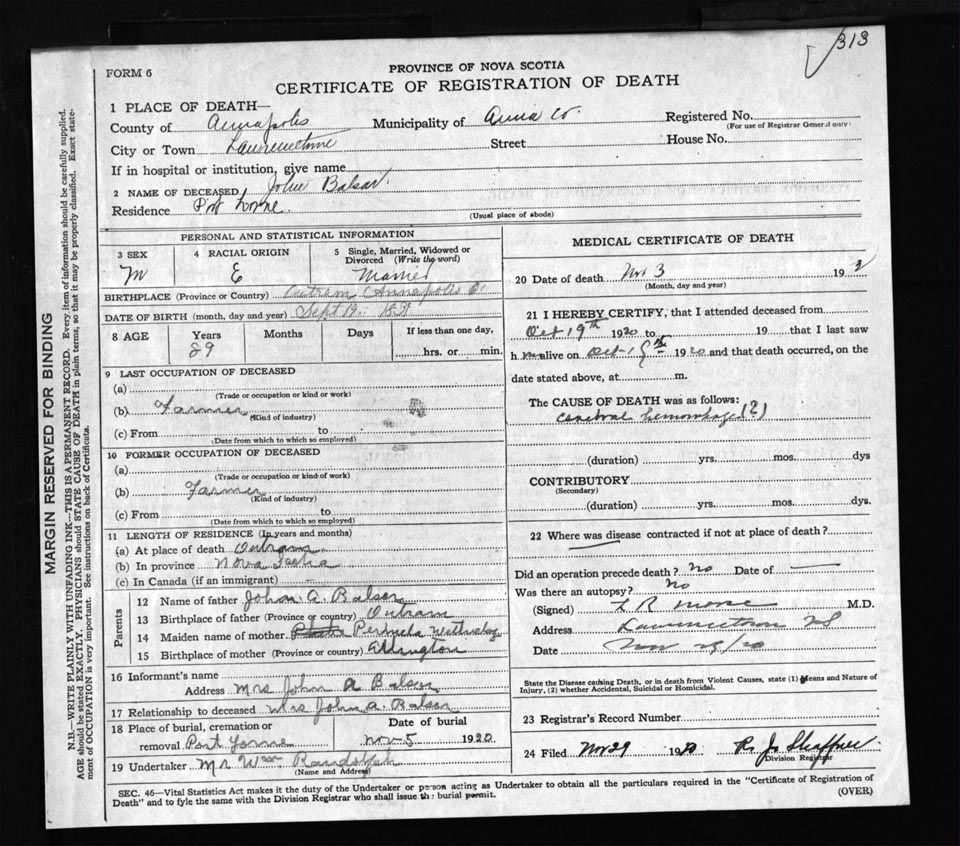 313
PROVINCE OF NOVA SCOTIA
FORM 6
CERTIFICATE OF REGISTRATION OF DEATH
1 PLACE OF DEATH—
County of Annapolis Municipality of Anna Co. Registered No.
(For use of Registrar General only)
City or Town Lawrencetown Street House No.
If in hospital or institution, give name
2 NAME OF DECEASED John Balsar
Residence Port Lorne.
(Usual place of abode)
MARGIN RESERVED FOR BINDING
N.B.—WRITE PLAINLY WITH UNFADING INK—THIS IS A PERMANENT RECORD. Every item of information should be carefully supplied.
AGE should be stated EXACTLY. PHYSICIANS should STATE CAUSE OF DEATH in plain terms, so that it may be properly classified. Exact state-
ment of OCCUPATION is very important. See instructions on back of Certificate.
PERSONAL AND STATISTICAL INFORMATION
3 SEX 4 RACIAL ORIGIN 5 Single, Married, Widowed or
Divorced (Write the word)
M E Married
BIRTHPLACE (Province or Country) Outram (Annapolis
DATE OF BIRTH (month, day and year) Sept 19
8 AGE Years Months Days If less than one day,
89 hrs. or min.
9 LAST OCCUPATION OF DECEASED
(a)
(Trade or occupation or kind or work)
(b) Farmer
(Kind of industry)
(c) From to
(Date from which to which so employed)
10 FORMER OCCUPATION OF DECEASED
(a)
(Trade or occupation or kind of work)
(b) Farmer
(Kind of industry)
(c) From to
(Date from which to which so employed)
11 LENGTH OF RESIDENCE (In years and months)
(a) At place of death Outram
(b) In province Nova Scotia
(c) In Canada (if an immigrant) -
Parents
12 Name of father John A. Balsor
13 Birthplace of father (Province or country) Outram
14 Maiden name of mother
15 Birthplace of mother (Province or country) Arlington
16 Informant's name
Address Mrs John A Balsor
17 Relationship to deceased Mrs John A. Balsor
18 Place of burial, cremation or Date of burial
removal Port Lorne Nov 5 1920
19 Undertaker Mr Wm. Randolph
(Name and Address)
MEDICAL CERTIFICATE OF DEATH
20 Date of death Nov 3 19
(Month, day and year)
21 I HEREBY CERTIFY, that I attended deceased from
Oct 19th 1920 to 19 that I last saw
h m alive on Oct 19th 1920 and that death occurred, on the
date stated above, at m.
The CAUSE OF DEATH was as follows:
Cerebral hemorrhage (?)
(duration) yrs. mos. dys
CONTRIBUTORY
(Secondary)
(duration) yrs. mos. dys.
22 Where was disease contracted if not at place of death?
Did an operation precede death? No Date of —
Was there an autopsy? No
(Signed) L R Morse M.D.
Address Lawrencetown NS
Date Nov 29/20
State the Disease causing Death, or in death from Violent Causes, state (1) Means and Nature of
Injury, (2) whether Accidental, Suicidal or Homicidal.
23 Registrar's Record Number
24 Filed Nov 29 1920 R. J. Shaffner
Division Registrar
SEC. 46—Vital Statistics Act makes it the duty of the Undertaker or person acting as Undertaker to obtain all the particulars required in the "Certificate of Registration of
Death" and to fyle the same with the Division Registrar who shall issue the burial permit. (OVER)